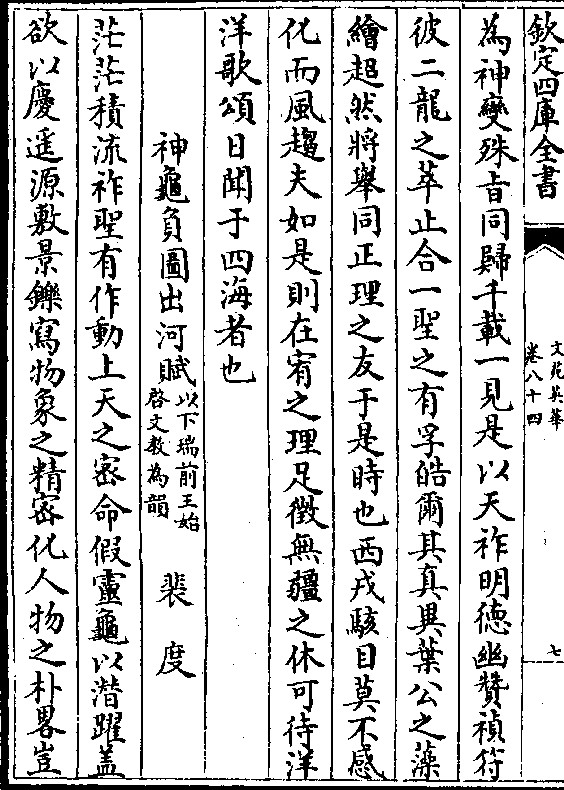 欽定四庫全書
文苑英華
卷八十四
七
為神變殊旨同歸千載一見是以天祚明德幽贊禎符
彼二龍之萃止合一聖之有孚皓爾其真異葉公之藻
繪超然將舉同正理之友于是時也西戎駭目莫不感
化而風趨夫如是則在宥之理足徵無疆之休可待洋
洋歌頌日聞于四海者也
神龜負圖出河賦以下瑞前王始啓文教為韻 裴度
茫茫積流祚聖有作動上天之密命假靈龜以潛躍盖
欲以慶遥源敷景鑠寫物象之精密化人物之朴畧豈